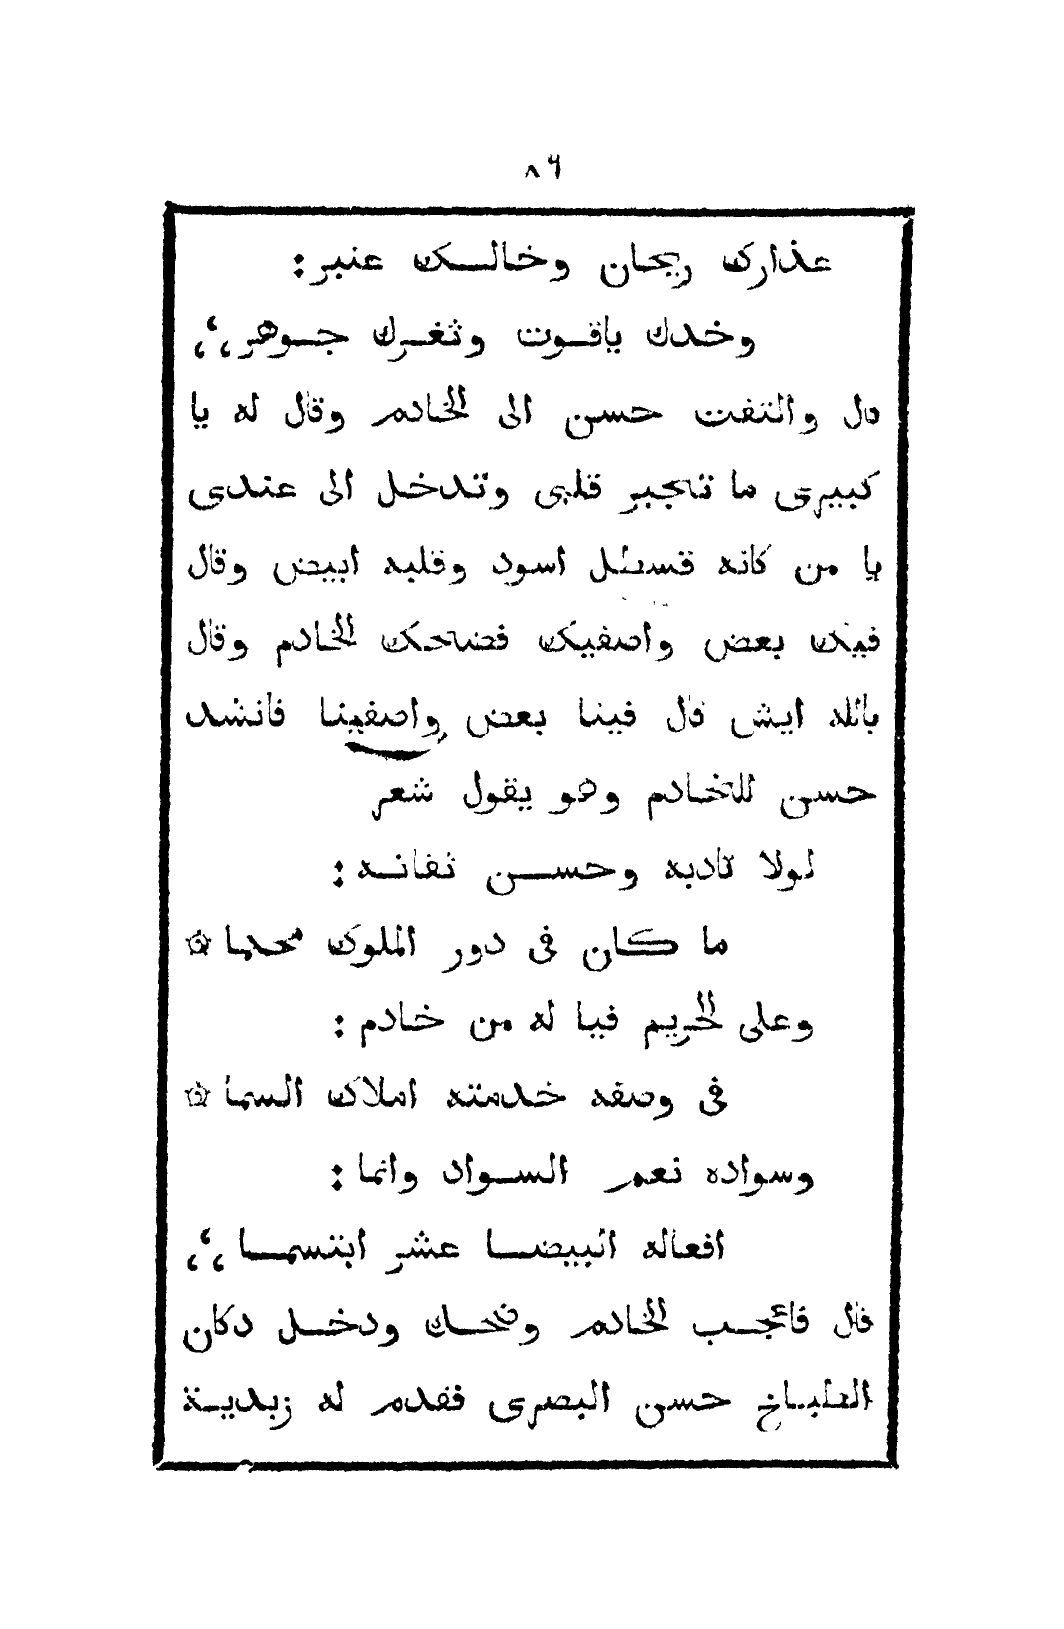 ٨٦
عذارك ريحان وخالك عنبر:
وخدك ياقوت وثغرك جوهر،،
قال والتفت حسن الى الخادم وقال له يا
كبيرى ما تنجبر قلبى وتدخل الى عندى
يا من كانه قسطل اسود وقلبه ابيض وقال
فيك بعض واصفيك فضحك الخادم وقال
بالله ايش قال فينا بعض واصفينا فانشد
حسن للخادم وهو يقول شعر
لولا تادبه وحسن ثقاته:
ما كان فى دور الملوك محكما ۞
وعلى الحريم فيا له من خادم:
فى وصفه خدمته املاك السما ۞
وسواده نعم السواد وانما:
افعاله البيضا عشر ابتسما،،
قال فاعجب الخادم وضحك ودخل دكان
الطباخ حسن البصرى فقدم له زبدية